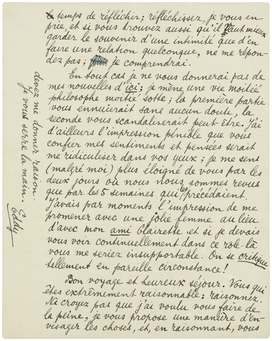 le temps de réfléchir; réfléchissez, je vous en
prie, et si vous trouvez aussi qu'il vaut mieux
garder le souvenir d'une intimité que d'en
faire une relation quelconque, ne me répon-
dez pas; je comprendrai.
En tout cas je ne vous donnerai pas de
mes nouvelles d'ici; je mène une vie moitié
philosophe moitié sotte; la première partie
vous ennuierait sans aucun doute, la
seconde vous scandaliserait peut être. J'ai
d'ailleurs l'impression pénible que vous
confier mes sentiments et pensées serait
me ridiculiser dans vos yeux; je me sens
(malgré moi) plus éloigné de vous par les
deux jours où nous nous sommes revus
que par les 5 semaines qui précédaient.
J'avais par moments l'impression de me
promener avec une jolie femme au lieu
d'avec mon ami Clairette et si je devais
vous voir continuellement dans ce rôle-là
vous me seriez insupportable. On se critique
tellement en pareille circonstance!
Bon voyage et heureux séjour. Vous qui
êtes extrêmement raisonnable: raisonnez.
Ne croyez pas que j'ai voulu vous faire de
la peine, je vous propose une manière d'en-
visager les choses, et, en raisonnant, vous
devez me donner raison.
Je vous serre la main.
Eddy